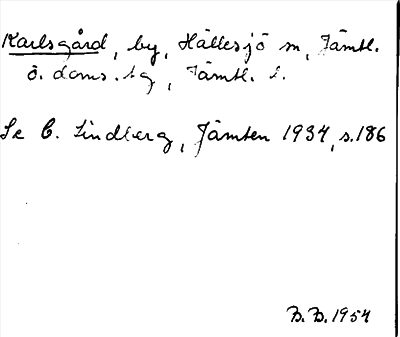 Karlsgård, by, Hällesjö sn, Jämtl.
ö. doms. tg, Jämtl. l.
Se C. Lindberg, Jämten 1934, s. 186
B. B. 1954